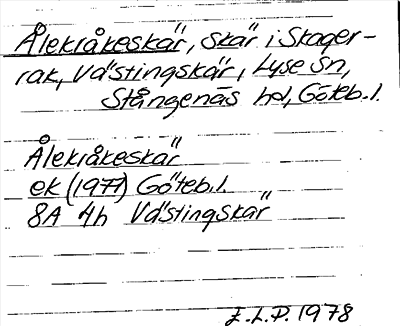 Ålekråkeskär, skär i Skager-
rak, Västingskär, Lyse sn,
Stångenäs hd, Göteb. l.
Ålekråkeskär
ek (1977) Göteb. l.
8A 4h Västingskär
E.L.P. 1978